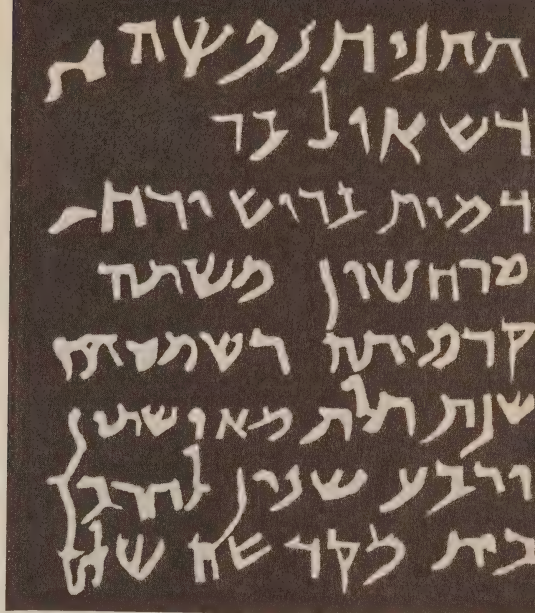 תתניח נפשה
דשאול בר
דמית בריש ירח
מרחשון משתה
קדמיתה דשמטתה
שנת תלת מאו ושתין
ורבע שנין לחרבן
בית מקדשה שלם